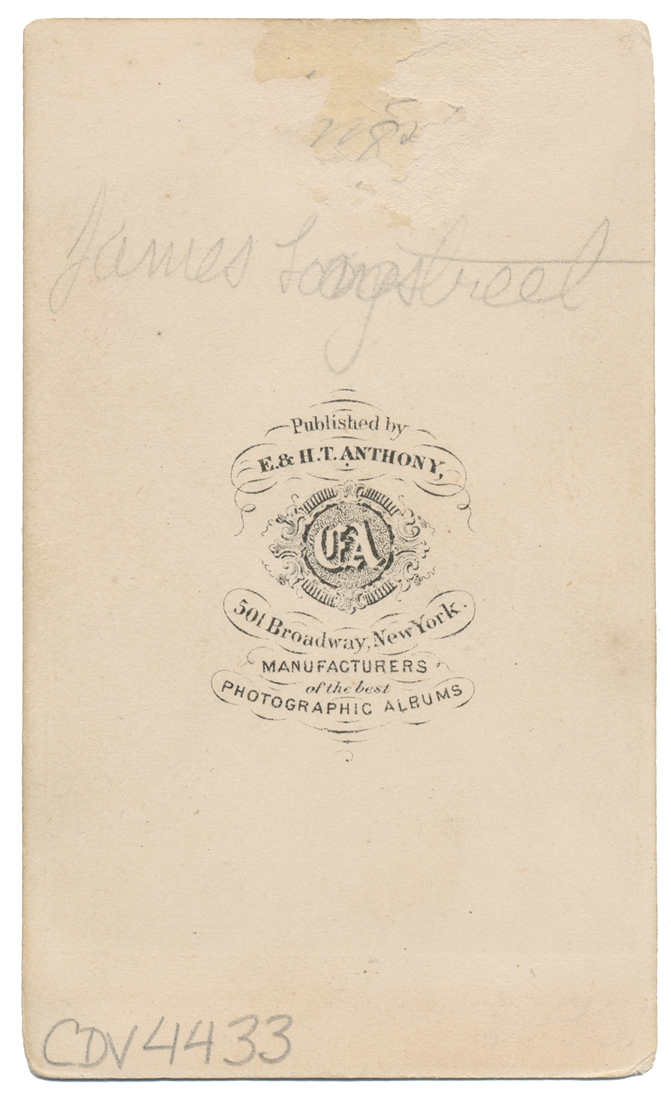 James Longstreet
Published by
E. & H. T. ANTHONY,
EA
501 Broadway, New York.
MANUFACTURERS
of the best
PHOTOGRAPHIC ALBUMS
CDV4433